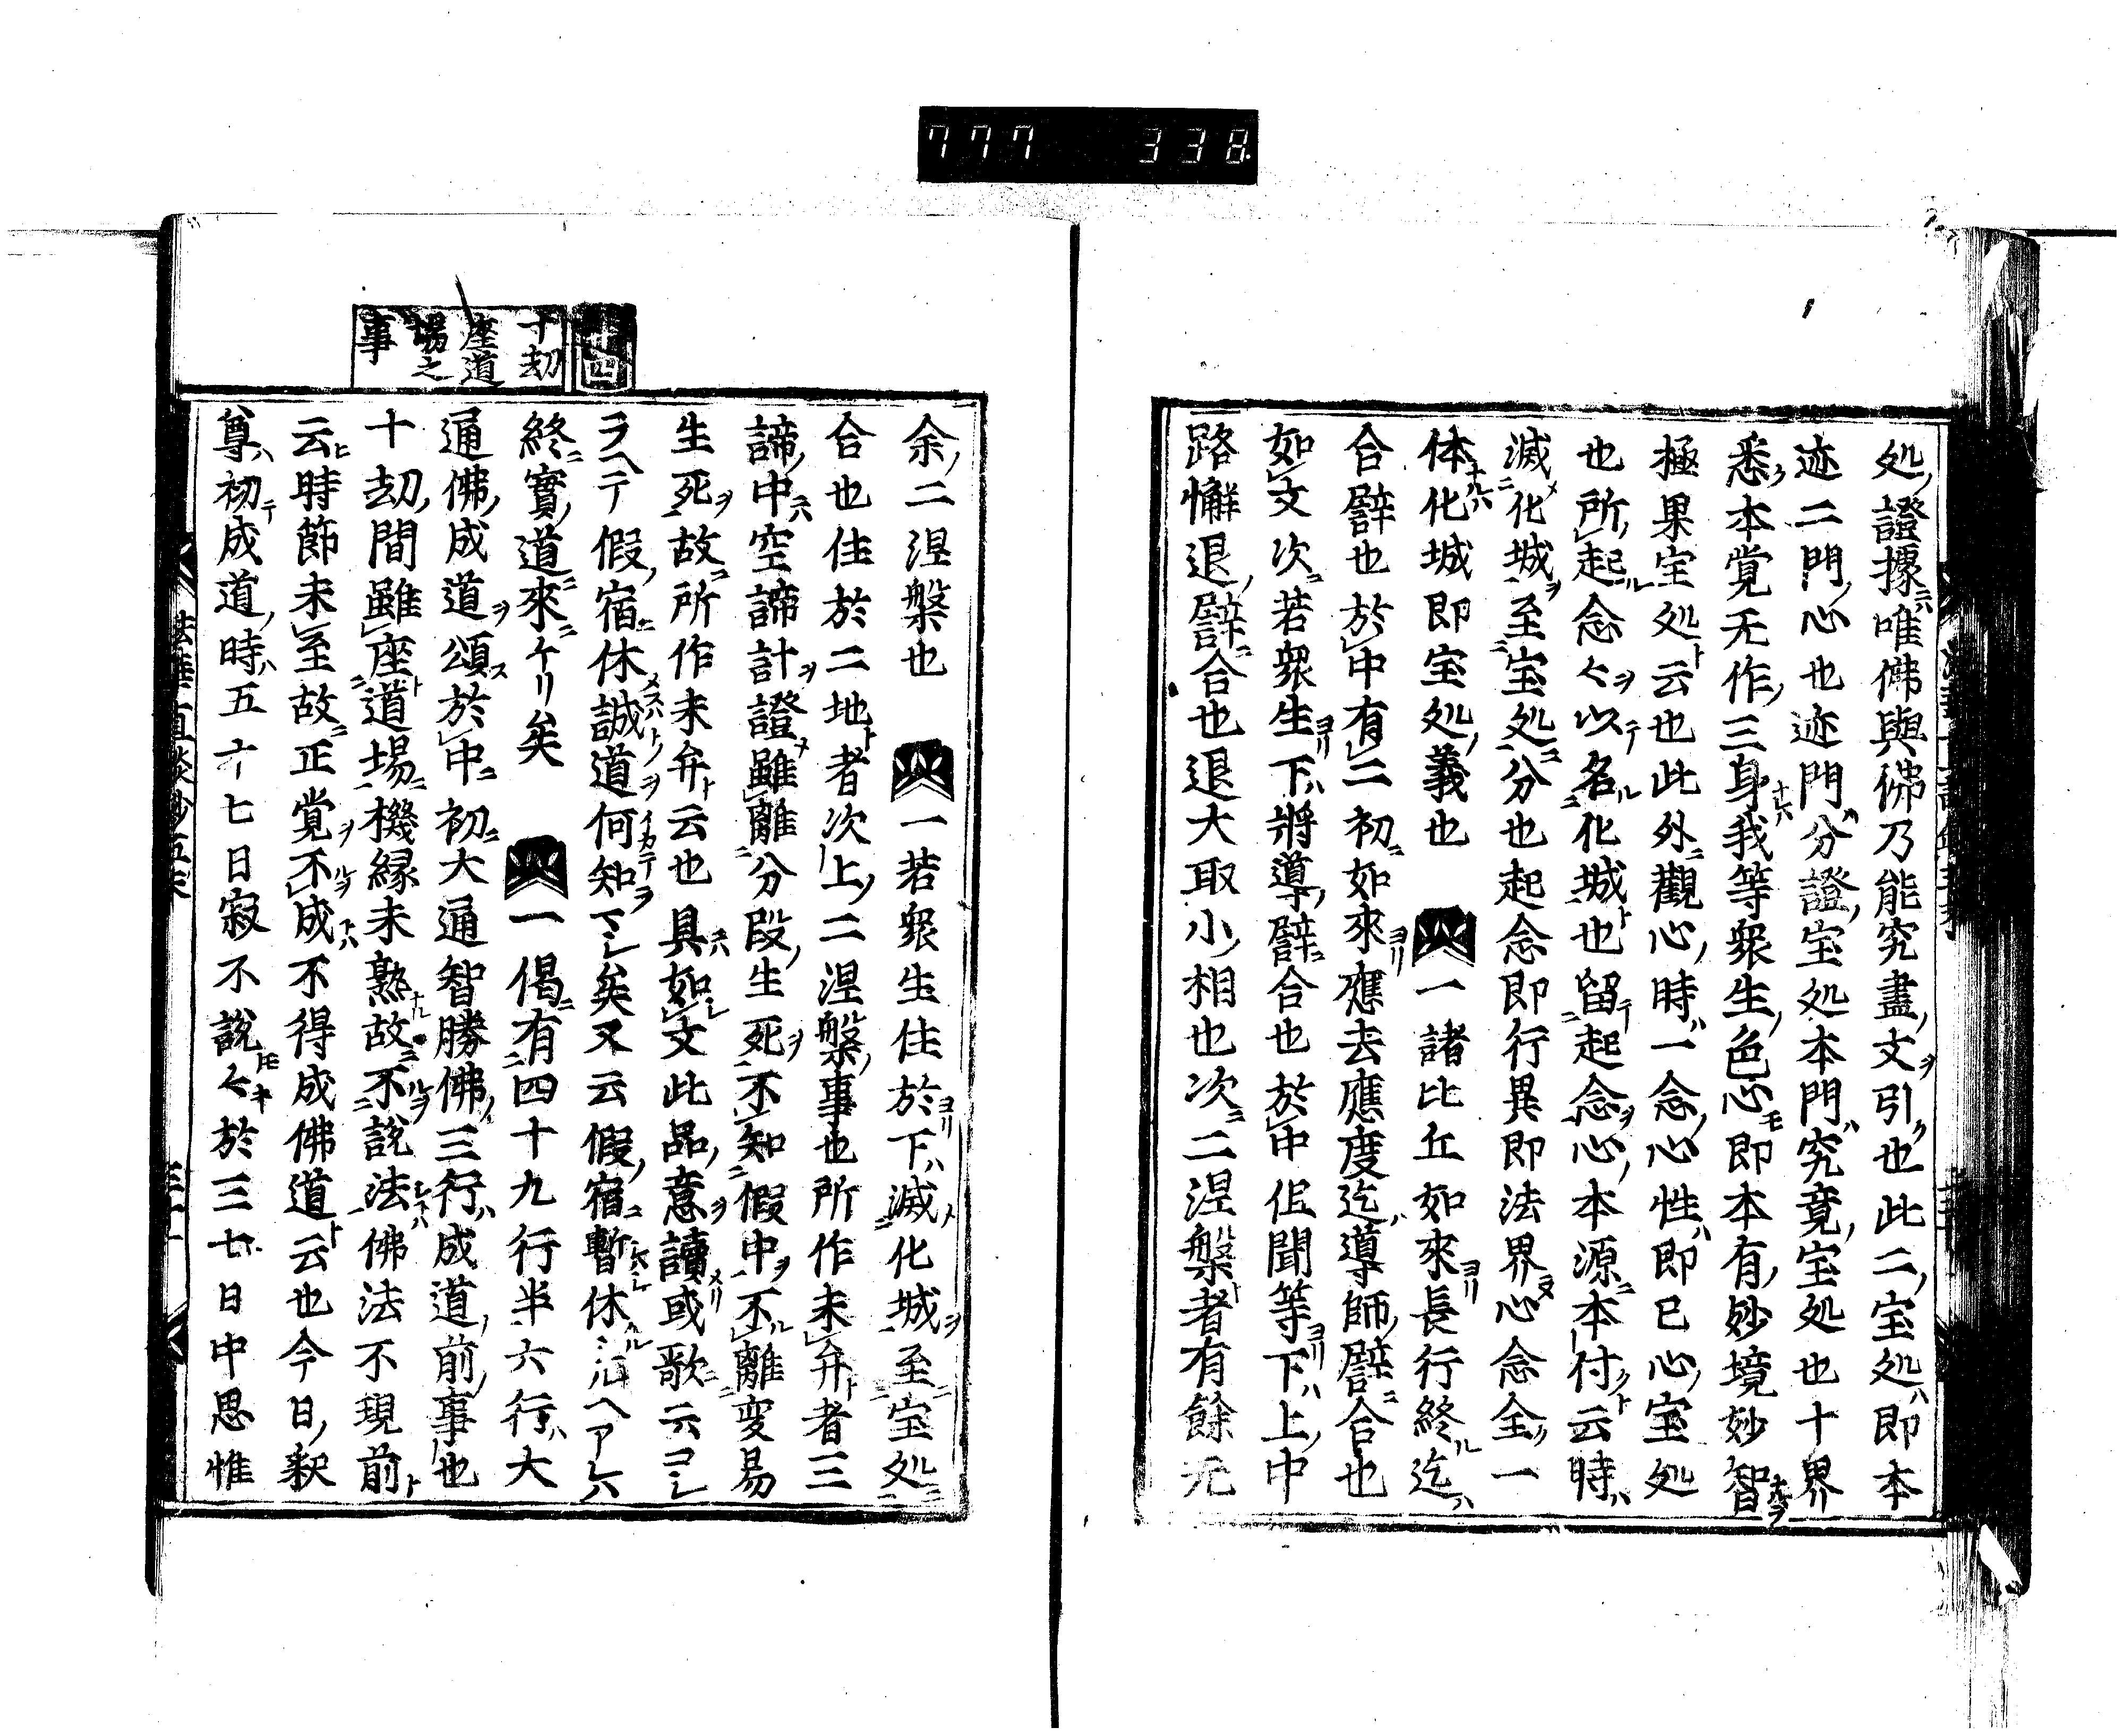 777 338.
処證據唯佛與佛乃能究盡文引也此二宝処即本
迹二門心也迹門分證宝処本門究竟宝処也十界
悉本覚无作三身我等衆生色心即本有妙境妙智
極果宝処云也此外觀心時一念心性即已心宝処
也所起念々以名化城也留起念心本源本付云時
滅化城至宝処分也起念即行異即法界心念全一
体化城即宝処義也 一諸比丘如來長行終迄
合譬也於中有二初如來應去應度迄導師譬合也
如文次若衆生下將導譬合也於中但聞等下上中
路懈退譬合也退大取小相也次二涅槃者有餘无
余二涅槃也 一若衆生住於下滅化城至宝処
合也住於二地者次上二涅槃事也所作未弁者三
諦中空諦計證雖離分段生死不知假中不離変易
生死故所作未弁云也具如文此品意讀或歌云コシ
ラヘテ假宿休誠道何知マシ矣又云假宿暫休
終實道來ケリ矣 一偈有四十九行半六行大
通佛成道頌於中初大通智勝佛三行成道前事也
十劫間雖座道場機縁未熟故不説法佛法不現前
云時節未至故正覚不成不得成佛道云也今日釈
尊初成道時五六七日寂不説々於三七日中思惟
十四
十劫
座道
場之
事